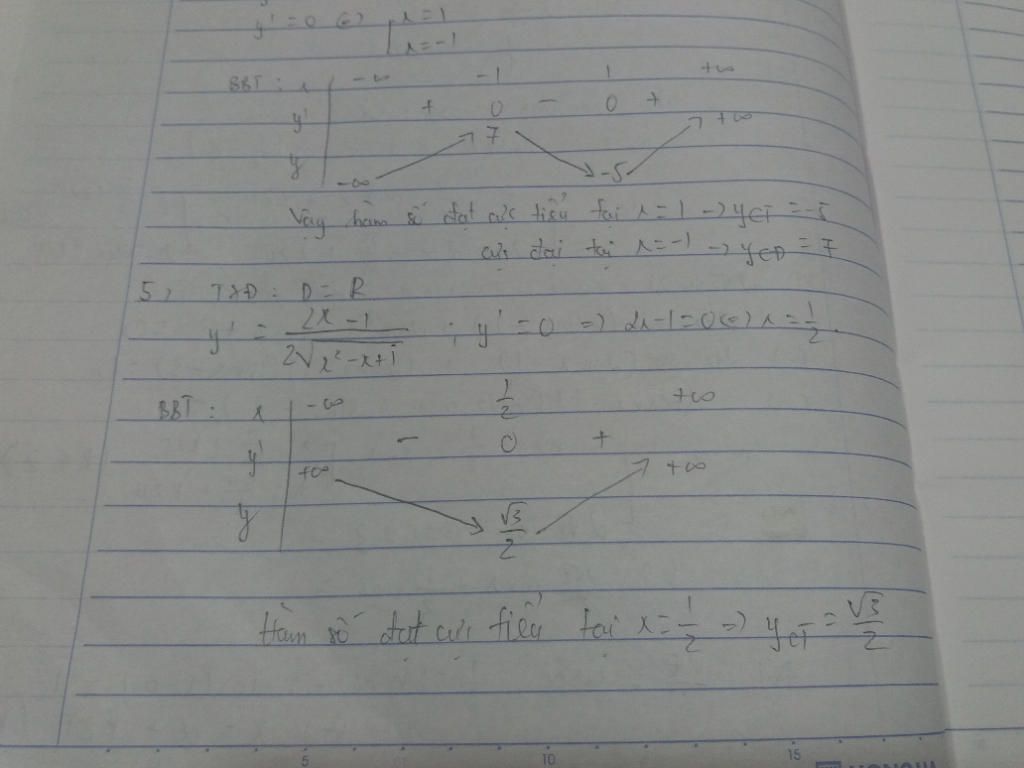 y' = 0 (=) [ x = 1
x = -1
BBT : x -∞ -1 1 +∞
y' + 0 - 0 +
y -∞ ↗ 7 ↘ -5 ↗ +∞
Vậy hàm số đạt cực tiểu tại x = 1 -> yCT = -5
cực đại tại x = -1 -> yCĐ = 7
5, TXĐ : D = R
y' = \frac{2x - 1}{2\sqrt{x² - x + 1}} ; y' = 0 => 2x - 1 = 0 (=) x = \frac{1}{2}.
BBT : x -∞ \frac{1}{2} +∞
y' - 0 +
y +∞ ↘ \frac{\sqrt{3}}{2} ↗ +∞
Hàm số đạt cực tiểu tại x = \frac{1}{2} => yCT = \frac{\sqrt{3}}{2}
5 10 15